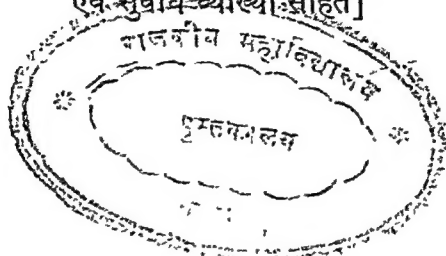 एवं सुबोध व्याख्या सहित]
राजकीय महाविद्यालय
पुस्तकालय